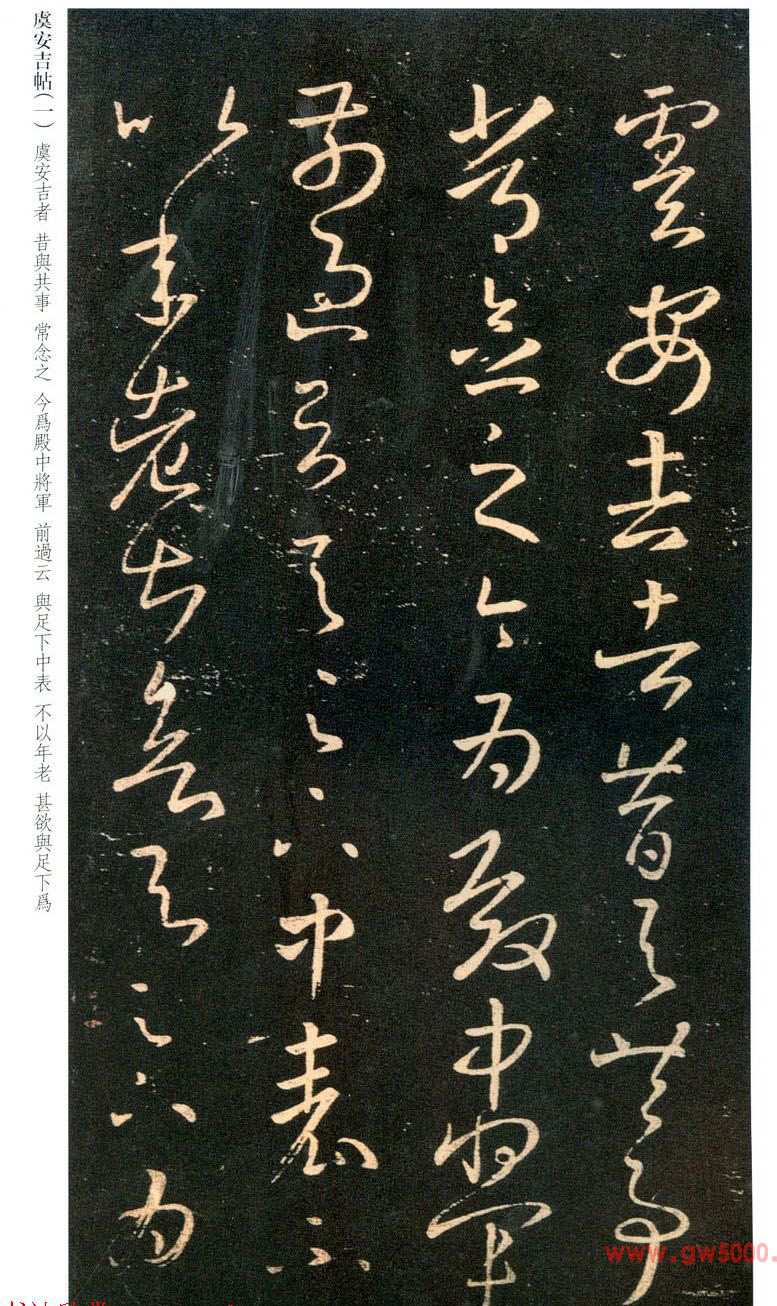 虞安吉者昔與共事
常念之今為殿中將軍
前過云與足下中表不
以年老甚欲與足下為
虞安吉帖(一) 虞安吉者 昔與共事 常念之 今爲殿中將軍 前過云 與足下中表 不以年老 甚欲與足下爲
www.gw5000.